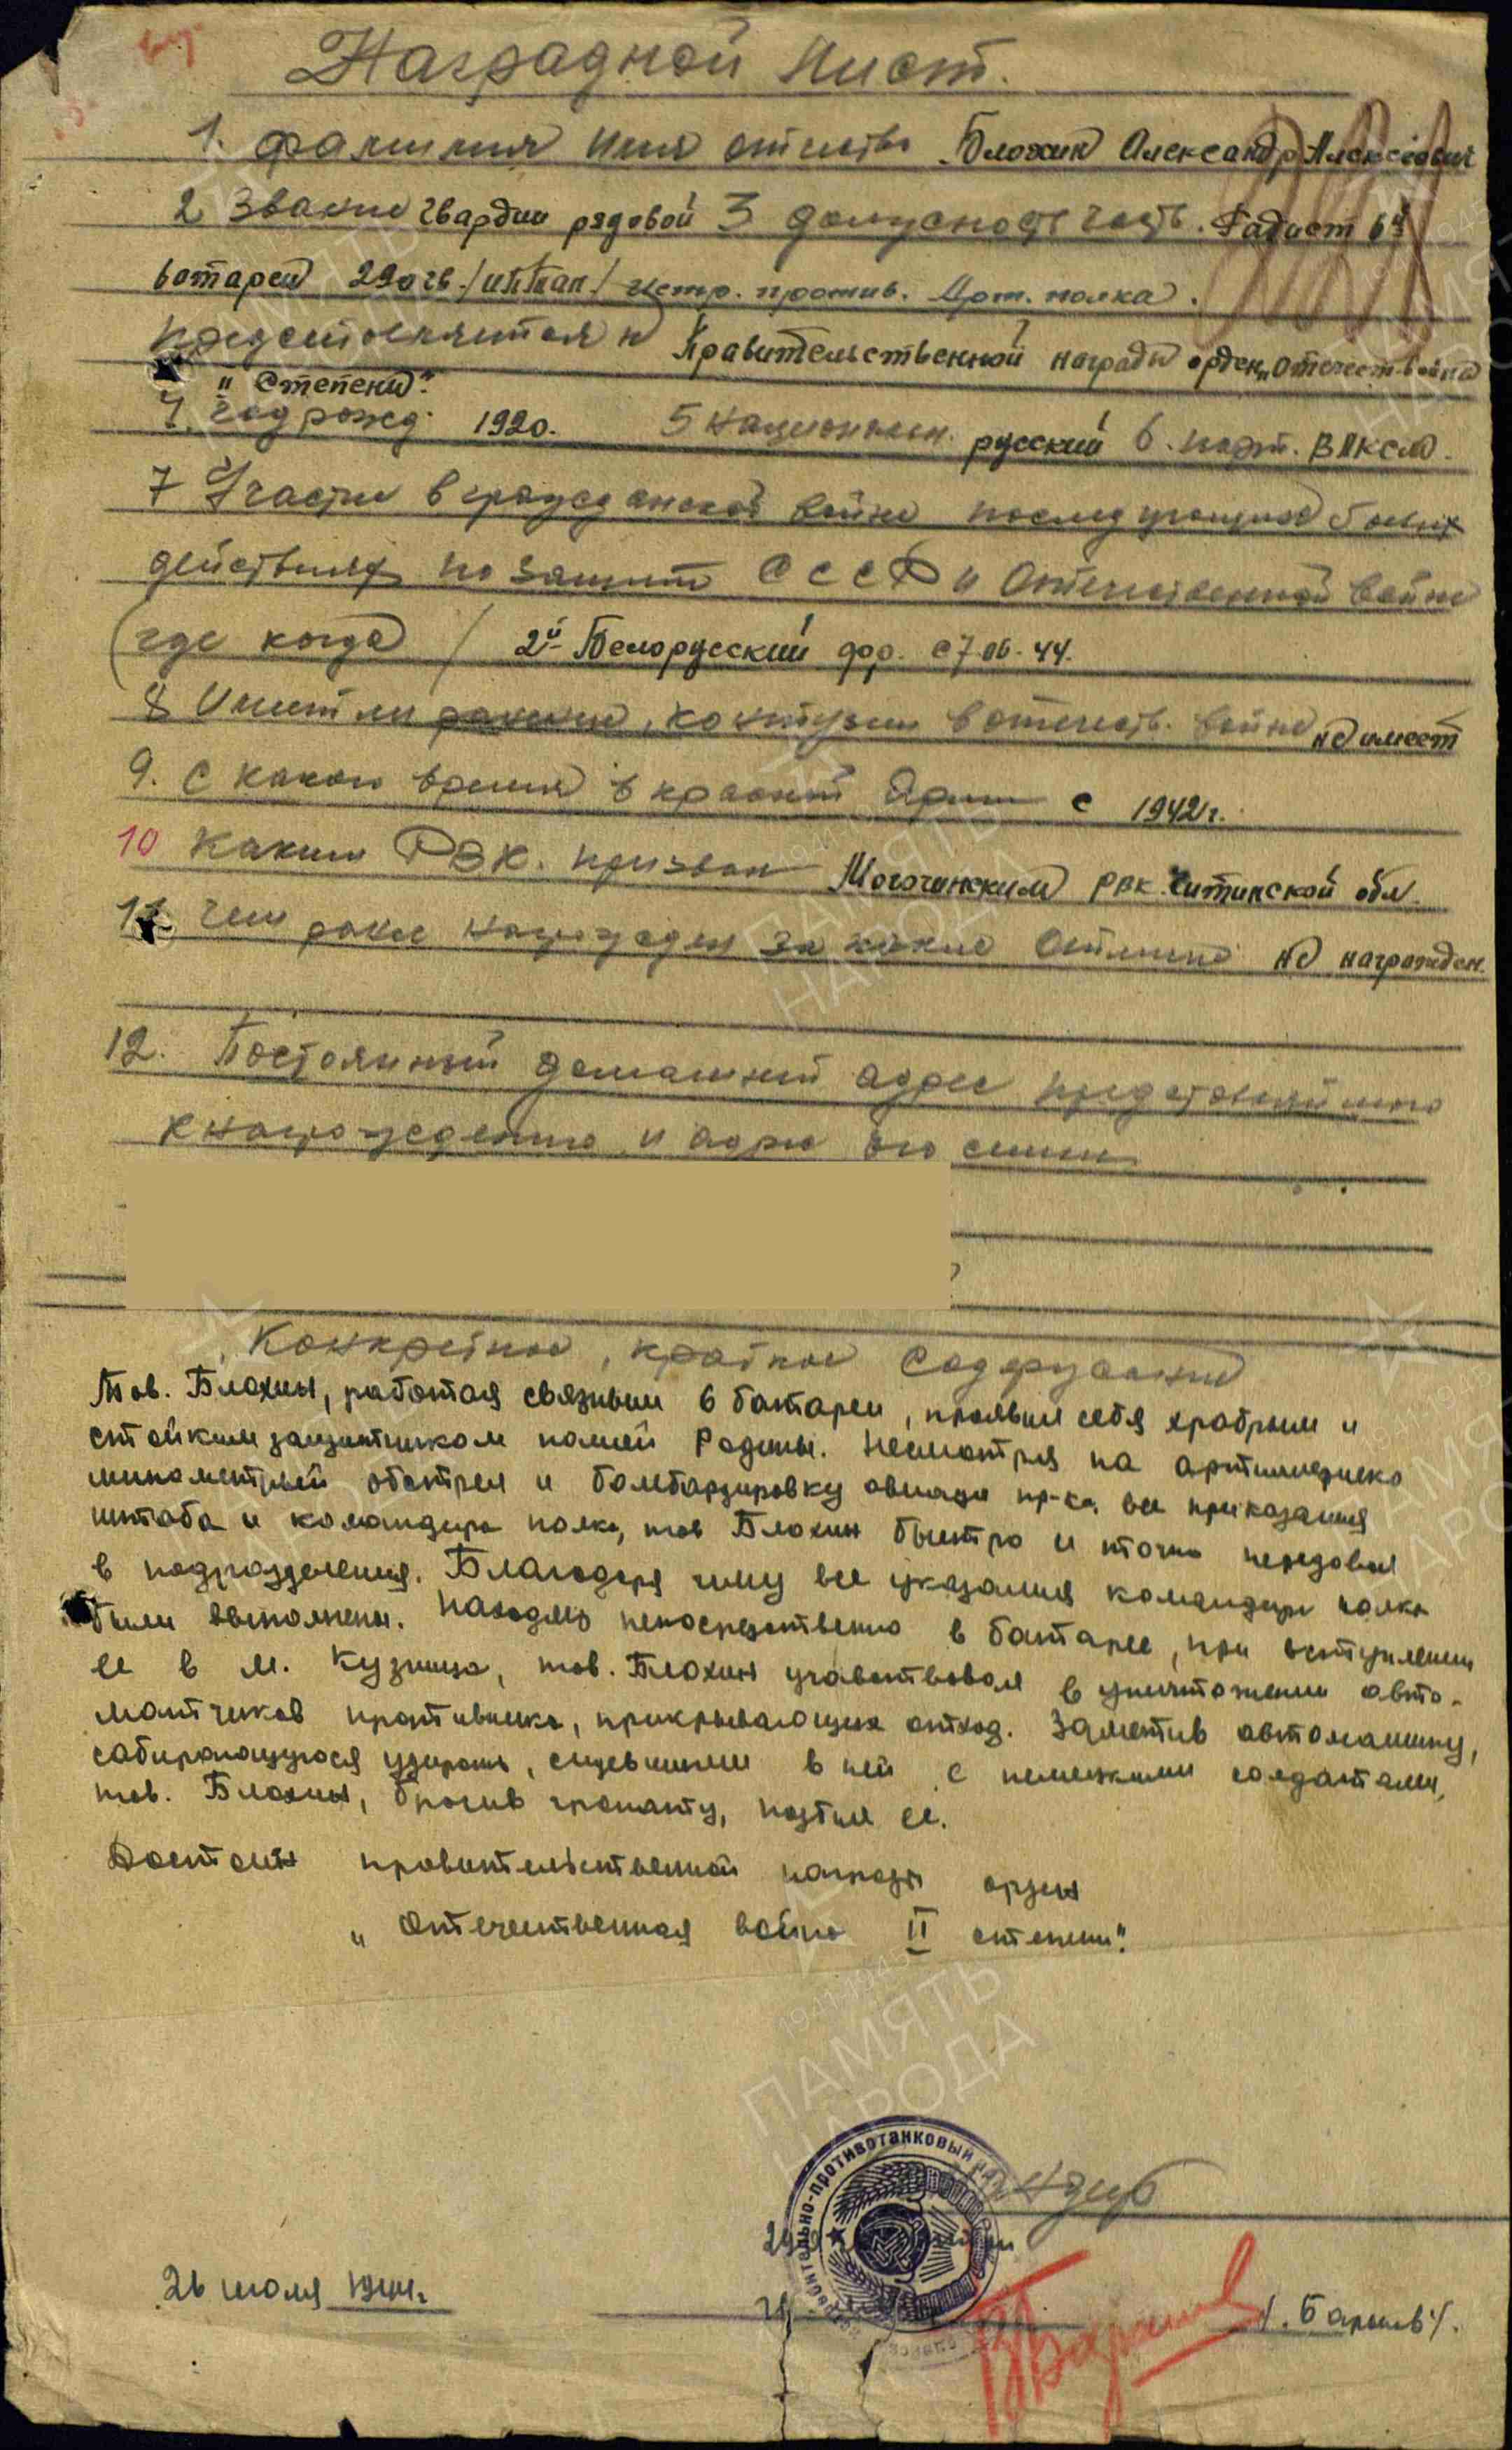 Наградной лист.
1. Фамилия Имя отчество Блохин Александр Алексеевич
2 Звание Гвардии рядовой 3 должность часть. Радист 6й
батареи 290 гв. /иптап/ истр. против. Арт. полка.
представляется к Правительственной награды орден „Отечест. война
" степени".
4. год рожд. 1920. 5 национальн. русский 6. парт. ВЛКСМ.
7 Участие в гражданской войне последующих боевых
действиях по защите СССР и Отечественной войне
(где когда / 2й Белорусский фр. с 7.06.44.
8 Имеет ли ранения, контузии в отечеств. войне не имеет
9. С какого время в красной Армии с 1942 г.
10 Каким РВК. призван Могочинским РВК. Читинской обл.
11. Чем ранее награжден за какие отличия не награжден.
12. Постоянный домашний адрес представляемого
к награждению и адрес его семьи
Конкретное, краткое содержание
Тов. Блохин, работая связным в батареи, проявил себя храбрым и
стойким защитником нашей Родины. Несмотря на артиллерийско
минометный обстрел и бомбардировку авиаци пр-ка, все приказания
штаба и командира полка, тов Блохин быстро и точно передавал
в подразделения. Благодаря чему все указания командира полка
были выполнены. Находясь непосредственно в батарее, при вступлении
ее в м. Кузница, тов. Блохин учавствовал в уничтожении авто-
матчиков противника, прикрывающих отход. Заметив автомашину,
собирающуюся удирать, сидевшими в ней с немецкими солдатами,
тов. Блохин, бросив гранату, подбил ее.
Достоин правительственной награды орден
„Отечественная война II степени".
26 июля 1944г.
/. Барышев /.
ПАМЯТЬ
НАРОДА